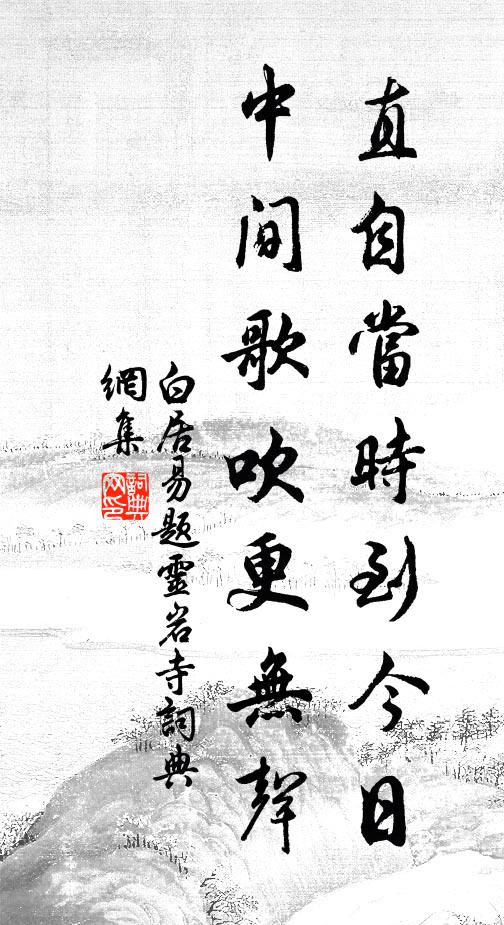 直自當時到今日
中间歌吹更無聲
白居易題靈岩寺詞典
網集
詞典
网印